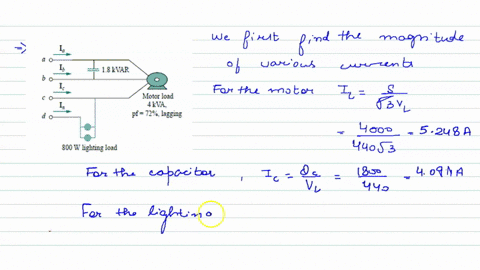 =>
We first find the magnitude
of various currents
For the motor I_L = S / √3 V_L
= 4000 / 440√3 = 5.248A
For the capacitor , I_c = Q_c / V_L = 1800 / 440 = 4.091A
For the lightino
I_a
a
I_b
1.8 kVAR
b
I_c
c
Motor load
4 kVA,
pf = 72%, lagging
I_o
d
800 W lighting load